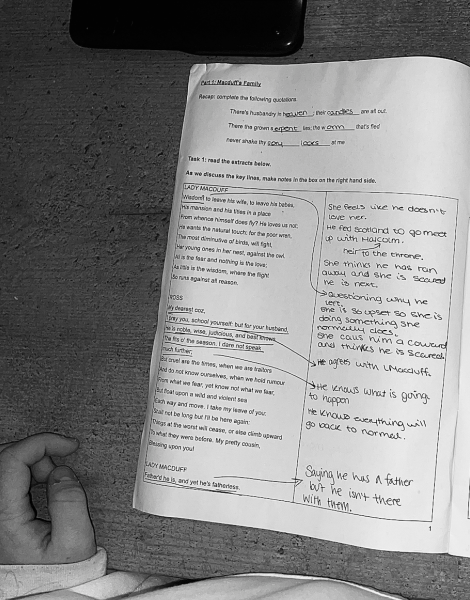 Part 1: Macduff's Family
Recap: complete the following quotations.
There's husbandry in heaven; their candles are all out.
There the grown serpent lies; the worm that's fled
never shake thy gory locks at me
Task 1: read the extracts below.
As we discuss the key lines, make notes in the box on the right hand side.
LADY MACDUFF
Wisdom! to leave his wife, to leave his babes,
His mansion and his titles in a place
From whence himself does fly? He loves us not;
He wants the natural touch: for the poor wren,
The most diminutive of birds, will fight,
Her young ones in her nest, against the owl.
All is the fear and nothing is the love;
As little is the wisdom, where the flight
So runs against all reason.
ROSS
My dearest coz,
I pray you, school yourself: but for your husband,
He is noble, wise, judicious, and best knows
The fits o' the season. I dare not speak
much further;
But cruel are the times, when we are traitors
And do not know ourselves, when we hold rumour
From what we fear, yet know not what we fear,
But float upon a wild and violent sea
Each way and move. I take my leave of you:
Shall not be long but I'll be here again:
Things at the worst will cease, or else climb upward
To what they were before. My pretty cousin,
Blessing upon you!
LADY MACDUFF
Father'd he is, and yet he's fatherless.
She feels like he doesn't
love her.
He fled scotland to go meet
up with Malcolm.
heir to the throne.
She thinks he has ran
away and she is scared
he is next.
Questioning why he
left.
She is so upset so she is
doing something she
normally does.
She calls him a coward
and thinks he is scared.
He agrees with LMacduff.
He knows what is going
to happen
He knows everything will
go back to normal.
Saying he has a father
but he isn't there
with them.
1